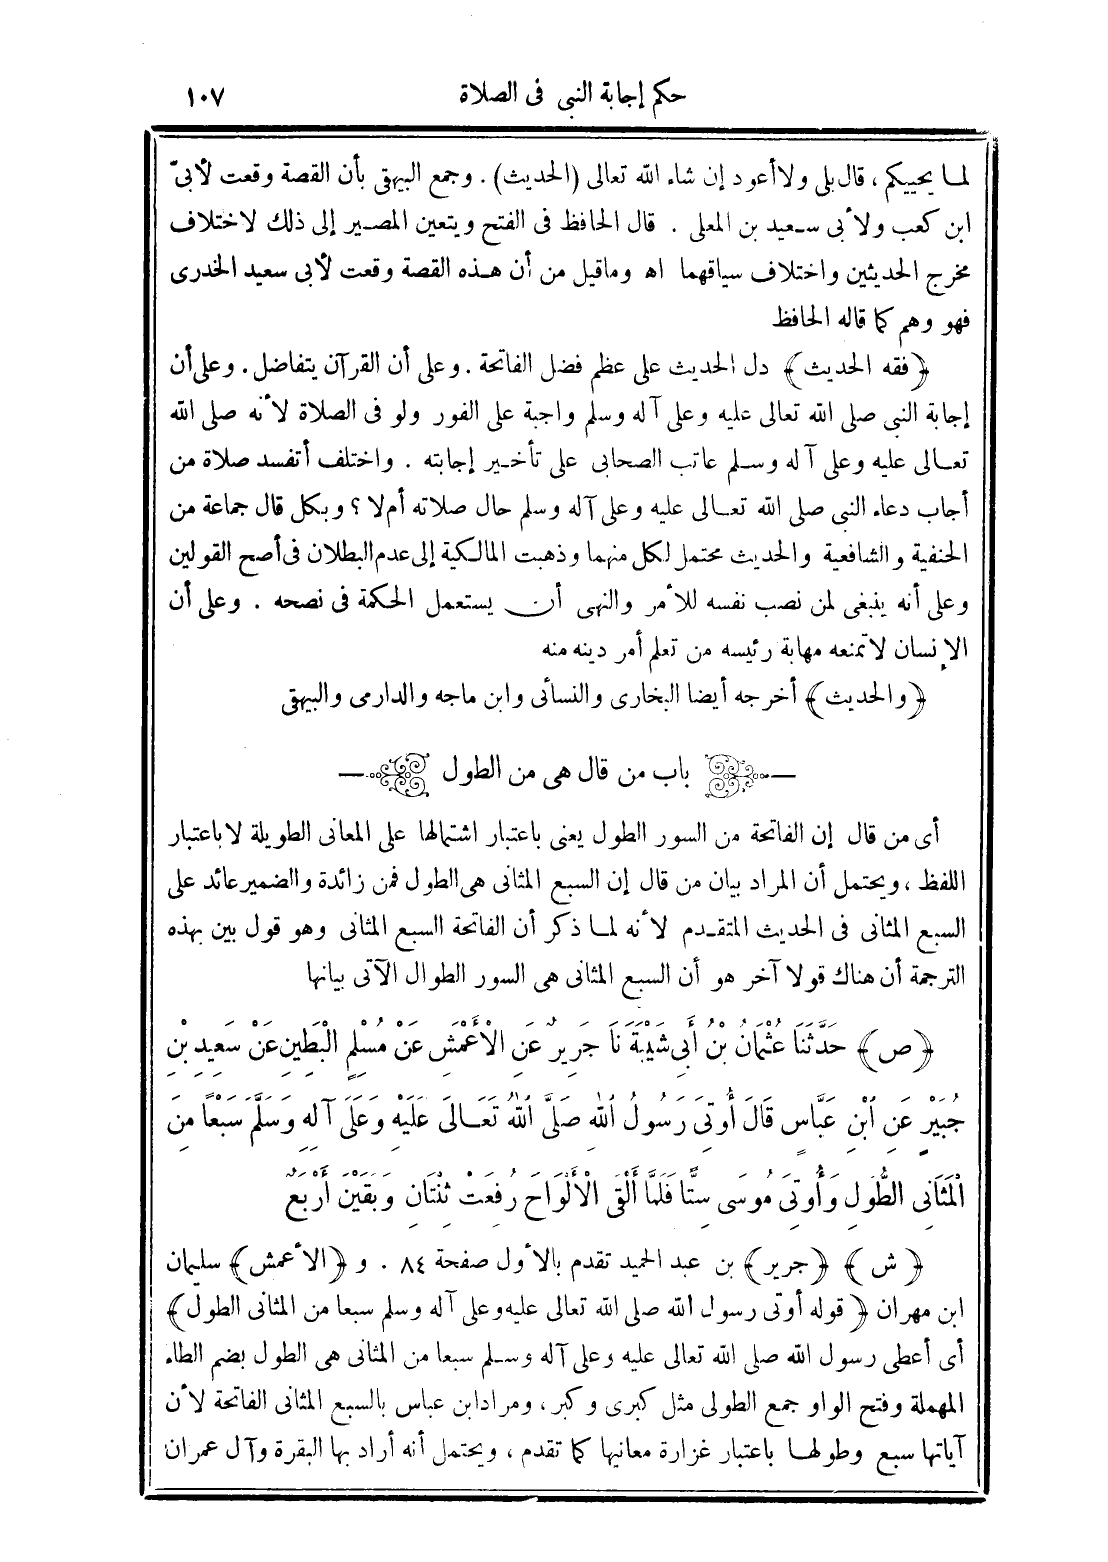 حكم إجابة النبى فى الصلاة ١٠٧
لما يحييكم ، قال بلى ولا أعود إن شاء الله تعالى (الحديث) . وجمع البيهقى بأن القصة وقعت لأبىّ
ابن كعب ولأبى سعيد بن المعلى . قال الحافظ فى الفتح ويتعين المصير إلى ذلك لاختلاف
مخرج الحديثين واختلاف سياقهما اه وماقيل من أن هذه القصة وقعت لأبى سعيد الخدرى
فهو وهم كما قاله الحافظ
﴿فقه الحديث﴾ دل الحديث على عظم فضل الفاتحة . وعلى أن القرآن يتفاضل . وعلى أن
إجابة النبى صلى الله تعالى عليه وعلى آله وسلم واجبة على الفور ولو فى الصلاة لأنه صلى الله
تعالى عليه وعلى آله وسلم عاتب الصحابى على تأخير إجابته . واختلف أتفسد صلاة من
أجاب دعاء النبى صلى الله تعالى عليه وعلى آله وسلم حال صلاته أم لا ؟ وبكل قال جماعة من
الحنفية والشافعية والحديث محتمل لكل منهما وذهبت المالكية إلى عدم البطلان فى أصح القولين
وعلى أنه ينبغى لمن نصب نفسه للأمر والنهى أن يستعمل الحكمة فى نصحه . وعلى أن
الإنسان لاتمنعه مهابة رئيسه من تعلم أمر دينه منه
﴿والحديث﴾ أخرجه أيضا البخارى والنسائى وابن ماجه والدارمى والبيهقى
باب من قال هى من الطول
أى من قال إن الفاتحة من السور الطول يعنى باعتبار اشتمالها على المعانى الطويلة لا باعتبار
اللفظ ، ويحتمل أن المراد بيان من قال إن السبع المثانى هى الطول فمن زائدة والضمير عائد على
السبع المثانى فى الحديث المتقدم لأنه لما ذكر أن الفاتحة السبع المثانى وهو قول بين بهذه
الترجمة أن هناك قولا آخر هو أن السبع المثانى هى السور الطوال الآتى بيانها
﴿ص﴾ حَدَّثَنَا عُثْمَانُ بْنُ أَبِى شَيْبَةَ نَا جَرِيرٌ عَنِ الْأَعْمَشِ عَنْ مُسْلِمٍ الْبَطِينِ عَنْ سَعِيدِ بْنِ
جُبَيْرٍ عَنِ ابْنِ عَبَّاسٍ قَالَ أُوتِىَ رَسُولُ اللهِ صَلَّى اللهُ تَعَالَى عَلَيْهِ وَعَلَى آلِهِ وَسَلَّمَ سَبْعًا مِنَ
الْمَثَانِى الطُّوَلِ وَأُوتِىَ مُوسَى سِتًّا فَلَمَّا أَلْقَى الْأَلْوَاحَ رُفِعَتْ ثِنْتَانِ وَبَقِيْنَ أَرْبَعٌ
﴿ش﴾ ﴿جرير﴾ بن عبد الحميد تقدم بالأول صفحة ٨٤ . و ﴿الأعمش﴾ سليمان
ابن مهران ﴿قوله أوتى رسول الله صلى الله تعالى عليه وعلى آله وسلم سبعا من المثانى الطول﴾
أى أعطى رسول الله صلى الله تعالى عليه وعلى آله وسلم سبعا من المثانى هى الطول بضم الطاء
المهملة وفتح الواو جمع الطولى مثل كبرى وكبر ، ومراد ابن عباس بالسبع المثانى الفاتحة لأن
آياتها سبع وطولها باعتبار غزارة معانيها كما تقدم ، ويحتمل أنه أراد بها البقرة وآل عمران